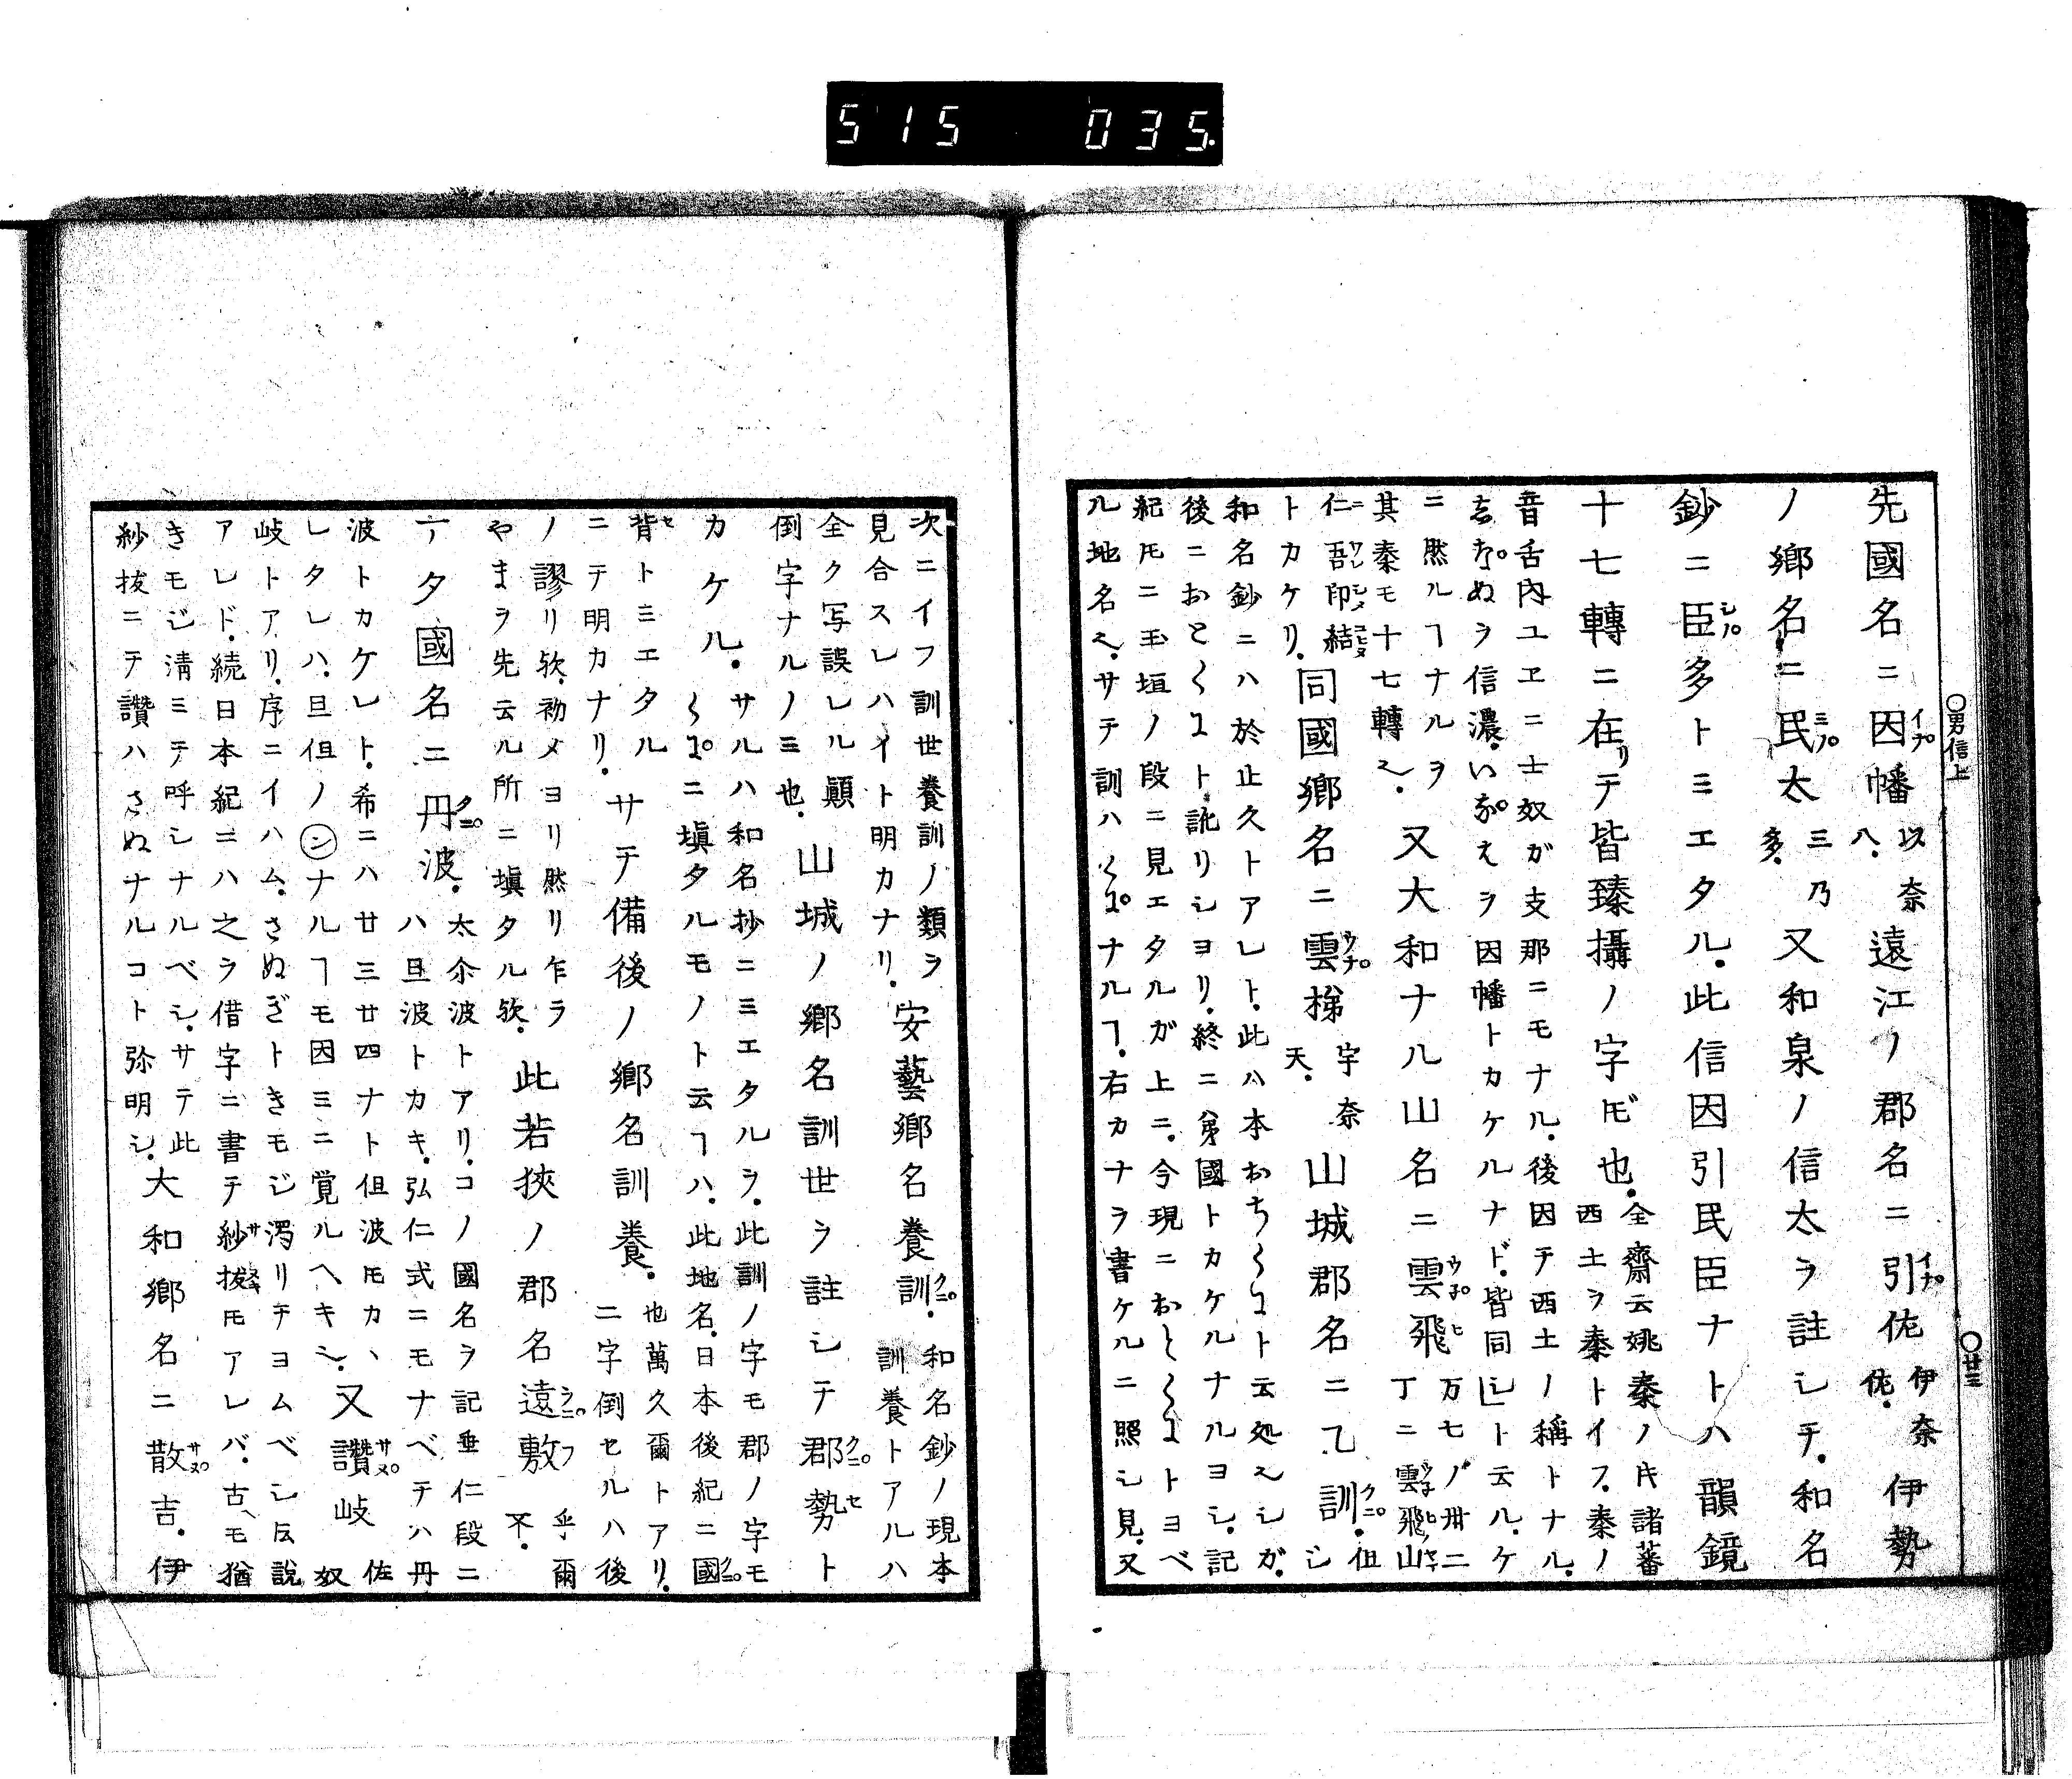 515 035.
○男信上
○廿三
先國名ニ因幡以奈八、遠江ノ郡名ニ引佐伊奈佐、伊勢
ノ鄉名ニ民太三乃多、又和泉ノ信太ヲ註シテ、和名
鈔ニ臣多トミエタル、此信因引民臣ナトハ韻鏡
十七轉ニ在リテ皆臻攝ノ字𪜈也、全齋云姚秦ノ氏諸蕃
西土ヲ秦トイフ、秦ノ
音舌内ユヱニ士奴ガ支那ニモナル、後因テ西土ノ稱トナル、
ぬヲ信濃、いなえヲ因幡トカケルナド、皆同シト云ル、ケ
ニ然ルヿナルヲ
其秦モ十七轉也、又大和ナル山名ニ雲飛万七ノ卅二
丁ニ雲飛山
仁吾印結
トカケリ、同國鄉名ニ雲梯宇奈天、山城郡名ニ乙訓、但シ
和名鈔ニハ於止久トアレト、此ハ本おちくにト云処ヘシガ、
後ニおとくにト訛リシヨリ、終ニ弟國トカケルナルヨシ、記
紀𪜈ニ玉垣ノ段ニ見エタルガ上ニ、今現ニおとくにトヨベ
ル地名也、サテ訓ハくにナルヿ、右カナラ書ケルニ照シ見、又
次ニイフ訓世養訓ノ類ヲ
見合スレハイト明カナリ、安藝鄉名養訓、和名鈔ノ現本
訓養トアルハ
全ク写誤レル顚
倒字ナルノミ也、山城ノ鄉名訓世ヲ註シテ郡勢ト
カケル、サルハ和名抄ニミエタルヲ、此訓ノ字モ郡ノ字モ
くにニ塡タルモノト云ヿハ、此地名、日本後紀ニ國
背トミエタル
ニテ明カナリ、サテ備後ノ鄉名訓養、也萬久爾トアリ、
二字倒セルハ後
ノ謬リ欤、初メヨリ然リ乍ラ
やまヲ先云ル所ニ塡タル欤、此若狹ノ郡名遠敷乎爾不、
亠タ國名ニ丹波、太尒波トアリ、コノ國名ヲ記垂仁段ニ
ハ旦波トカキ、弘仁式ニモナベテハ丹
波トカケレト、希ニハ廿三廿四ナト但波𪜈カヽ
レタレハ、旦但ノンナルヿモ因ミニ覚ルヘキ也、又讚岐佐奴
岐トアリ、序ニイハム、さぬぎトきモジ濁リテヨムベシ反説
アレド、続日本紀ニハ之ヲ借字ニ書テ紗拔𪜈アレバ、古モ猶
きモジ淸ミテ呼シナルベシ、サテ此
紗拔ニテ讚ハさぬナルコト弥明シ、大和鄉名ニ散吉、伊